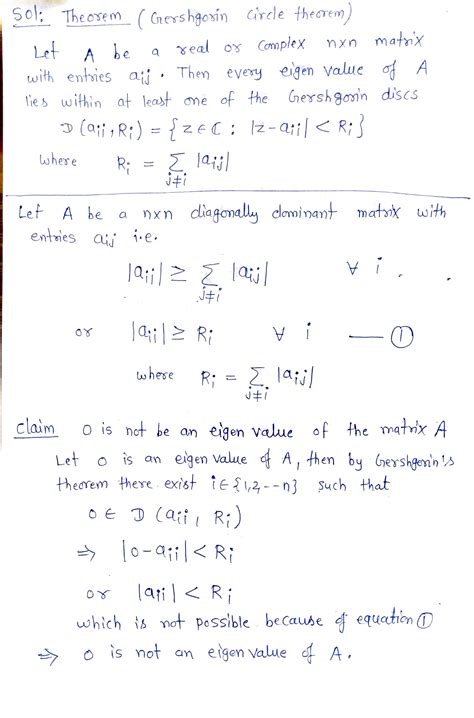 Sol: Theorem (Gershgorin Circle theorem)
Let A be a real or complex nxn matrix
with entries aij. Then every eigen value of A
lies within at least one of the Gershgorin discs
D(aii, Ri) = {z ∈ ℂ : |z-aii| < Ri}
where Ri = Σ_{j≠i} |aij|
Let A be a nxn diagonally dominant matrix with
entries aij i.e.
|aii| ≥ Σ_{j≠i} |aij| ∀ i.
or |aii| ≥ Ri ∀ i — ①
where Ri = Σ_{j≠i} |aij|
Claim 0 is not be an eigen value of the matrix A
Let 0 is an eigen value of A, then by Gershgorin's
theorem there exist i ∈ {1,2,--n} such that
0 ∈ D (aii, Ri)
⇒ |0-aii| < Ri
or |aii| < Ri
which is not possible because of equation ①
⇒ 0 is not an eigen value of A.